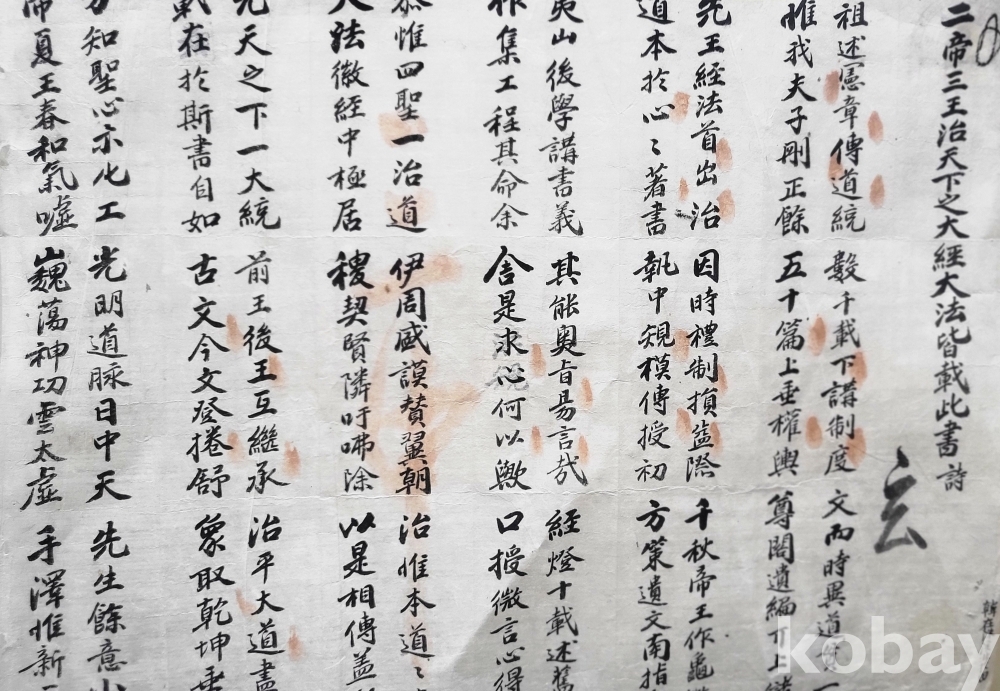 二帝三王治天下之大經大法皆載此書 詩
玄
祖述憲章傳道統 數千載下講制度 文而時異道
惟我夫子刪正餘 五十篇上垂權輿 尊閣遺編丌上
先王經法首出治 因時禮制損益際 千秋帝王作龜
道本於心〻著書 執中規模傳授初 方策遺文南指
夷山後學講書義 其能奧旨昜言哉 經燈十載述舊
作集工程其命余 舍是求心何以歟 口授微言心得
恭惟四聖一治道 伊周盛謨贊翼朝 治惟本道〻
大法徽經中極居 稷契賢隣吁咈除 以是相傳盖
光天之下一大統 前王後王互繼承 治平大道盡
載在於斯書自如 古文今文登捲舒 象取乾坤垂
方知聖心亦化工 光明道脉日中天 先生餘意
帝夏王春和氣噓 巍蕩神功雲太虛 手澤惟新
kobay